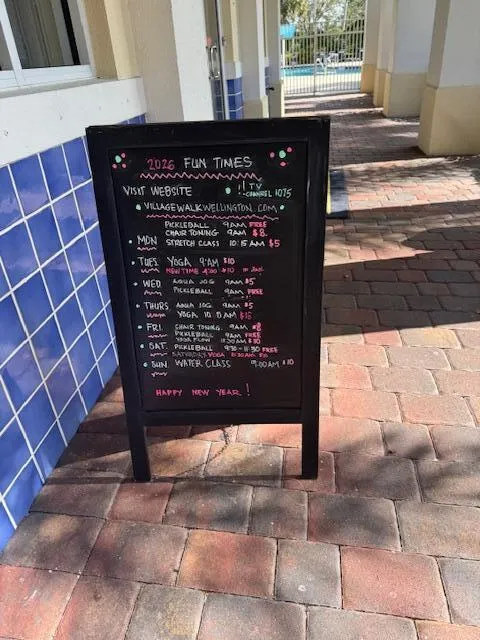 2026 FUN TIMES
VISIT WEBSITE !! TV CHANNEL 1075
• VILLAGEWALKWELLINGTON.COM •
PICKLEBALL 9AM FREE
CHAIR TONING 9AM $8
• MON STRETCH CLASS 10:15 AM $5
• TUES YOGA 9AM $10
NEW TIME 4:00 $10
• WED AQUA JOG 9AM $5
PICKLEBALL 9AM FREE
• THURS AQUA JOG 9AM $5
YOGA AM $15
• FRI. CHAIR TONING 9AM $8
PICKLEBALL 9AM FREE
YOGA FLOW 11:30AM $10
• SAT. PICKLEBALL 9:30-11:30 FREE
SATURDAY YOGA 8:30AM
• SUN WATER CLASS 9:00AM $10
HAPPY NEW YEAR!